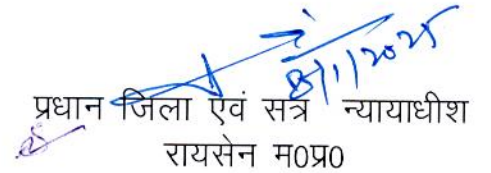 8/1/2025
प्रधान जिला एवं सत्र न्यायाधीश
रायसेन म0प्र0